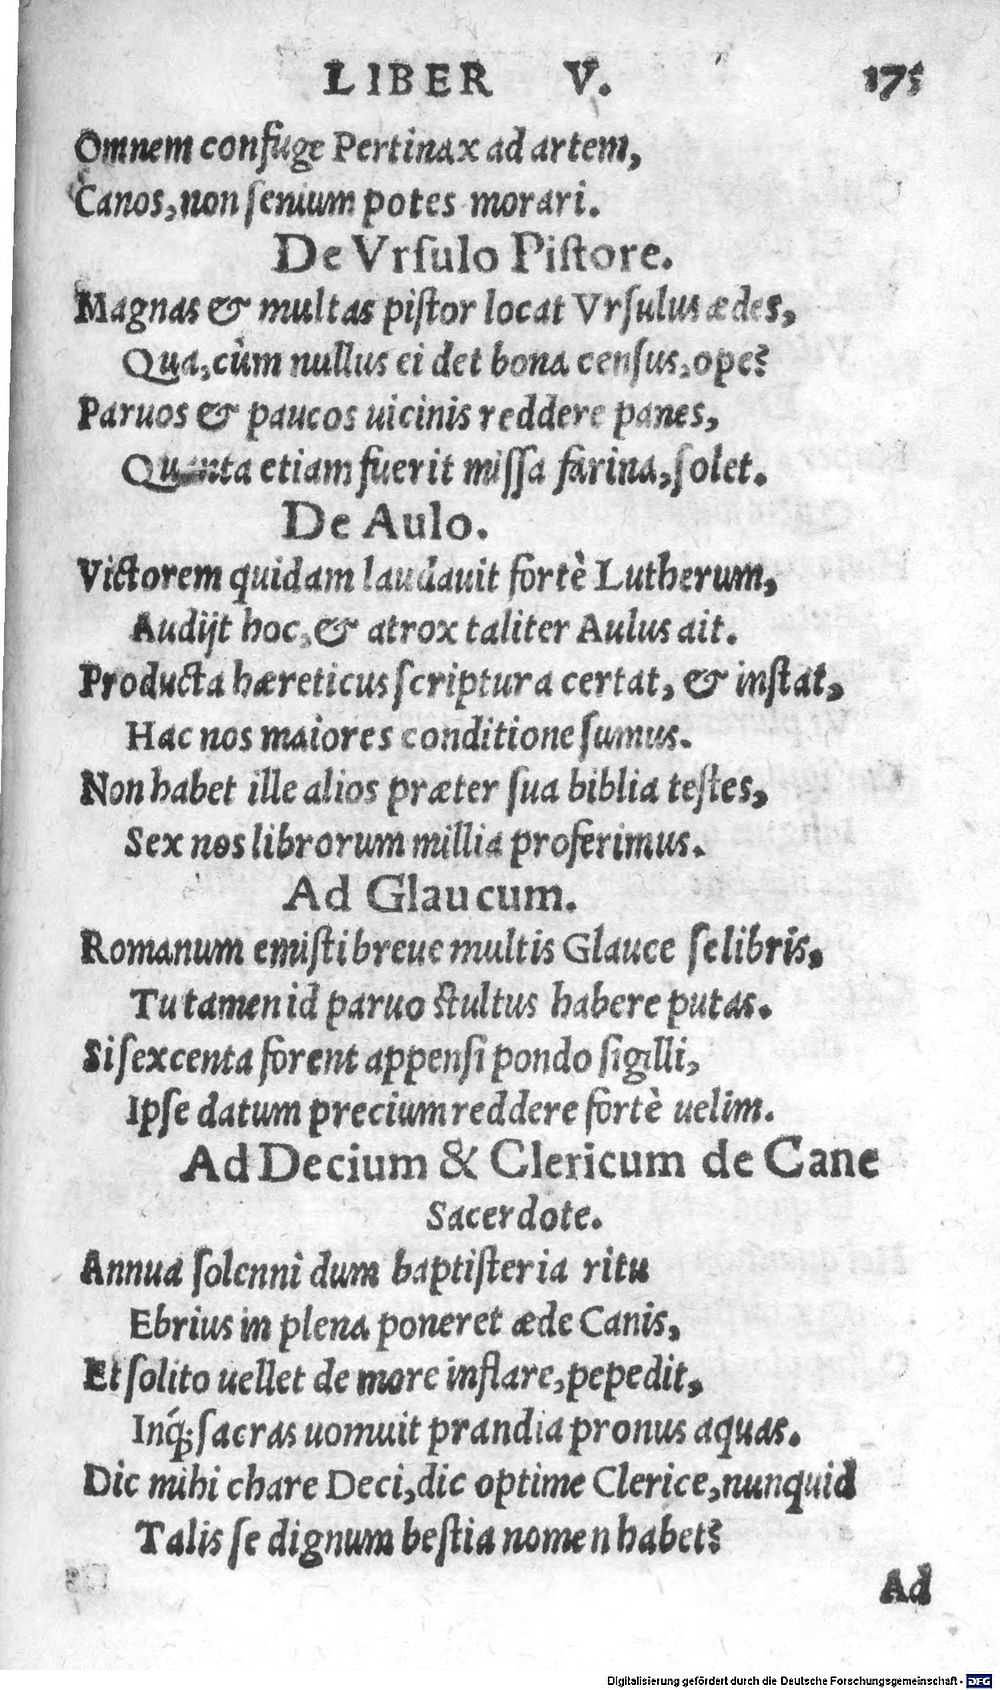 LIBER V. 175
Omnem confuge Pertinax ad artem,
Canos, non ſenium potes morari.
De Vrſulo Piſtore.
Magnas & multas piſtor locat Vrſulus ædes,
Qua, cùm nullus ei det bona cenſus, ope?
Paruos & paucos uicinis reddere panes,
Quanta etiam fuerit miſſa farina, ſolet.
De Aulo.
Victorem quidam laudauit fortè Lutherum,
Audijt hoc, & atrox taliter Aulus ait.
Producta hæreticus ſcriptura certat, & inſtat,
Hac nos maiores conditione ſumus.
Non habet ille alios præter ſua biblia teſtes,
Sex nos librorum millia proferimus.
Ad Glaucum.
Romanum emiſti breue multis Glauce ſelibris,
Tu tamen id paruo ſtultus habere putas.
Si ſexcenta forent appenſi pondo ſigilli,
Ipſe datum precium reddere fortè uelim.
Ad Decium & Clericum de Cane
Sacerdote.
Annua ſolenni dum baptiſteria ritu
Ebrius in plena poneret æde Canis,
Et ſolito uellet de more inflare, pepedit,
Inq́; ſacras uomuit prandia pronus aquas.
Dic mihi chare Deci, dic optime Clerice, nunquid
Talis ſe dignum beſtia nomen habet?
Ad
Digitalisierung gefördert durch die Deutsche Forschungsgemeinschaft - DFG